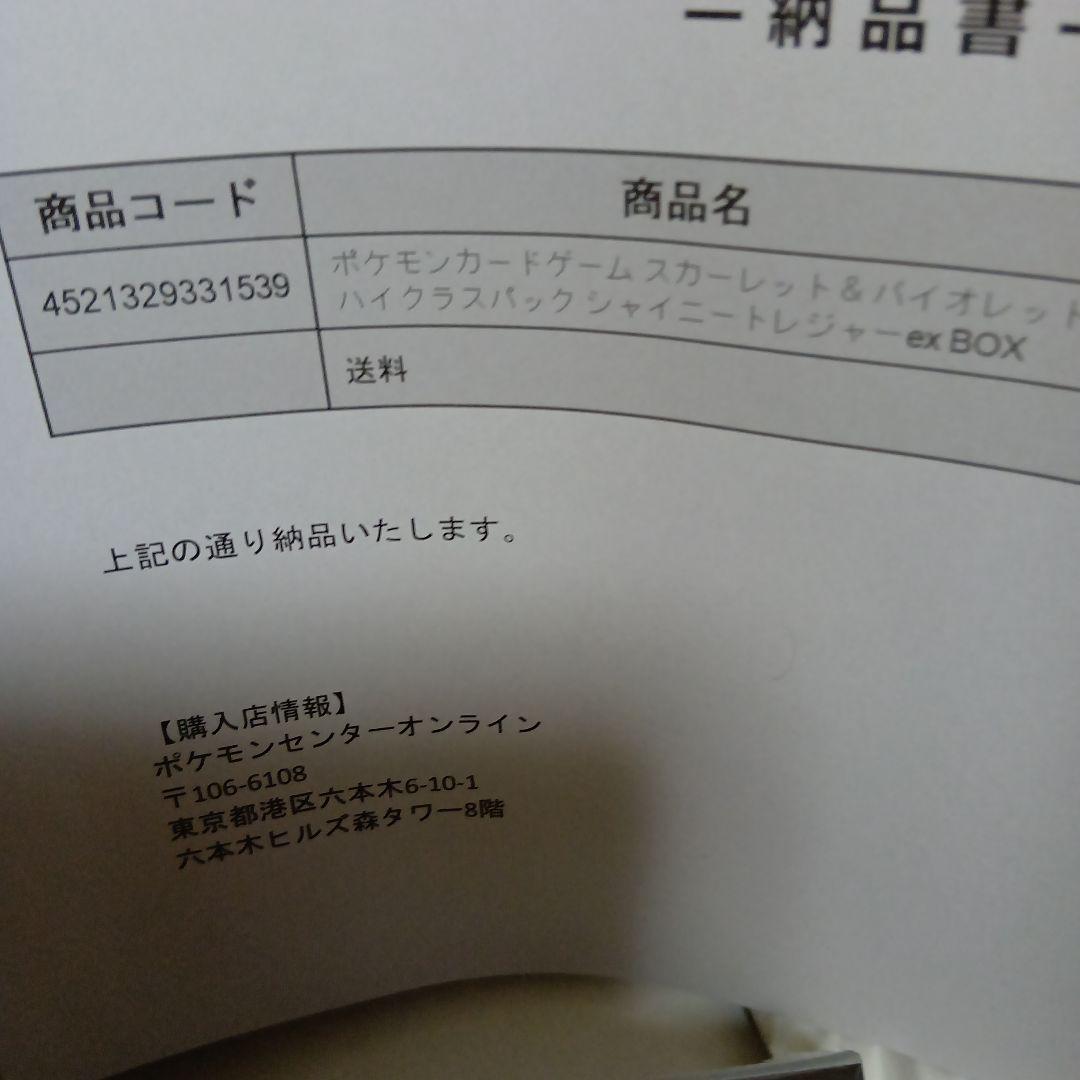 ー納品書ー
商品コード 商品名
4521329331539 ポケモンカードゲーム スカーレット&バイオレット
ハイクラスパック シャイニートレジャーex BOX
送料
上記の通り納品いたします。
【購入店情報】
ポケモンセンターオンライン
〒106-6108
東京都港区六本木6-10-1
六本木ヒルズ森タワー8階